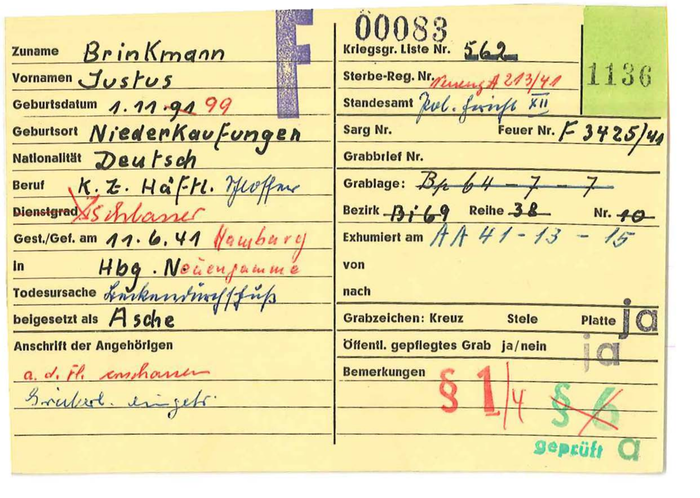 F
00083
1136
Zuname Brinkmann
Vornamen Justus
Geburtsdatum 1.11.91 99
Geburtsort Niederkaufungen
Nationalität Deutsch
Beruf K.Z. Häftl. Schlosser
Dienstgrad Schlosser
Gest./Gef. am 11.6.41 Hamburg
in Hbg. Neuengamme
Todesursache Beckendurchschuß
beigesetzt als Asche
Anschrift der Angehörigen
a. d. Fl. erschossen
Gräberl. eingetr.
Kriegsgr. Liste Nr. 562
Sterbe-Reg. Nr. Neueng A 213/41
Standesamt Pol. XII
Sarg Nr. Feuer Nr. F 3425/41
Grabbrief Nr.
Grablage: Bp 64 - 7 - 7
Bezirk Bi 69 Reihe 38 Nr. 10
Exhumiert am AA 41 - 13 - 15
von
nach
Grabzeichen: Kreuz Stele Platte ja
Öffentl. gepflegtes Grab ja/nein ja
Bemerkungen
§ 1/4 § 6
geprüft a